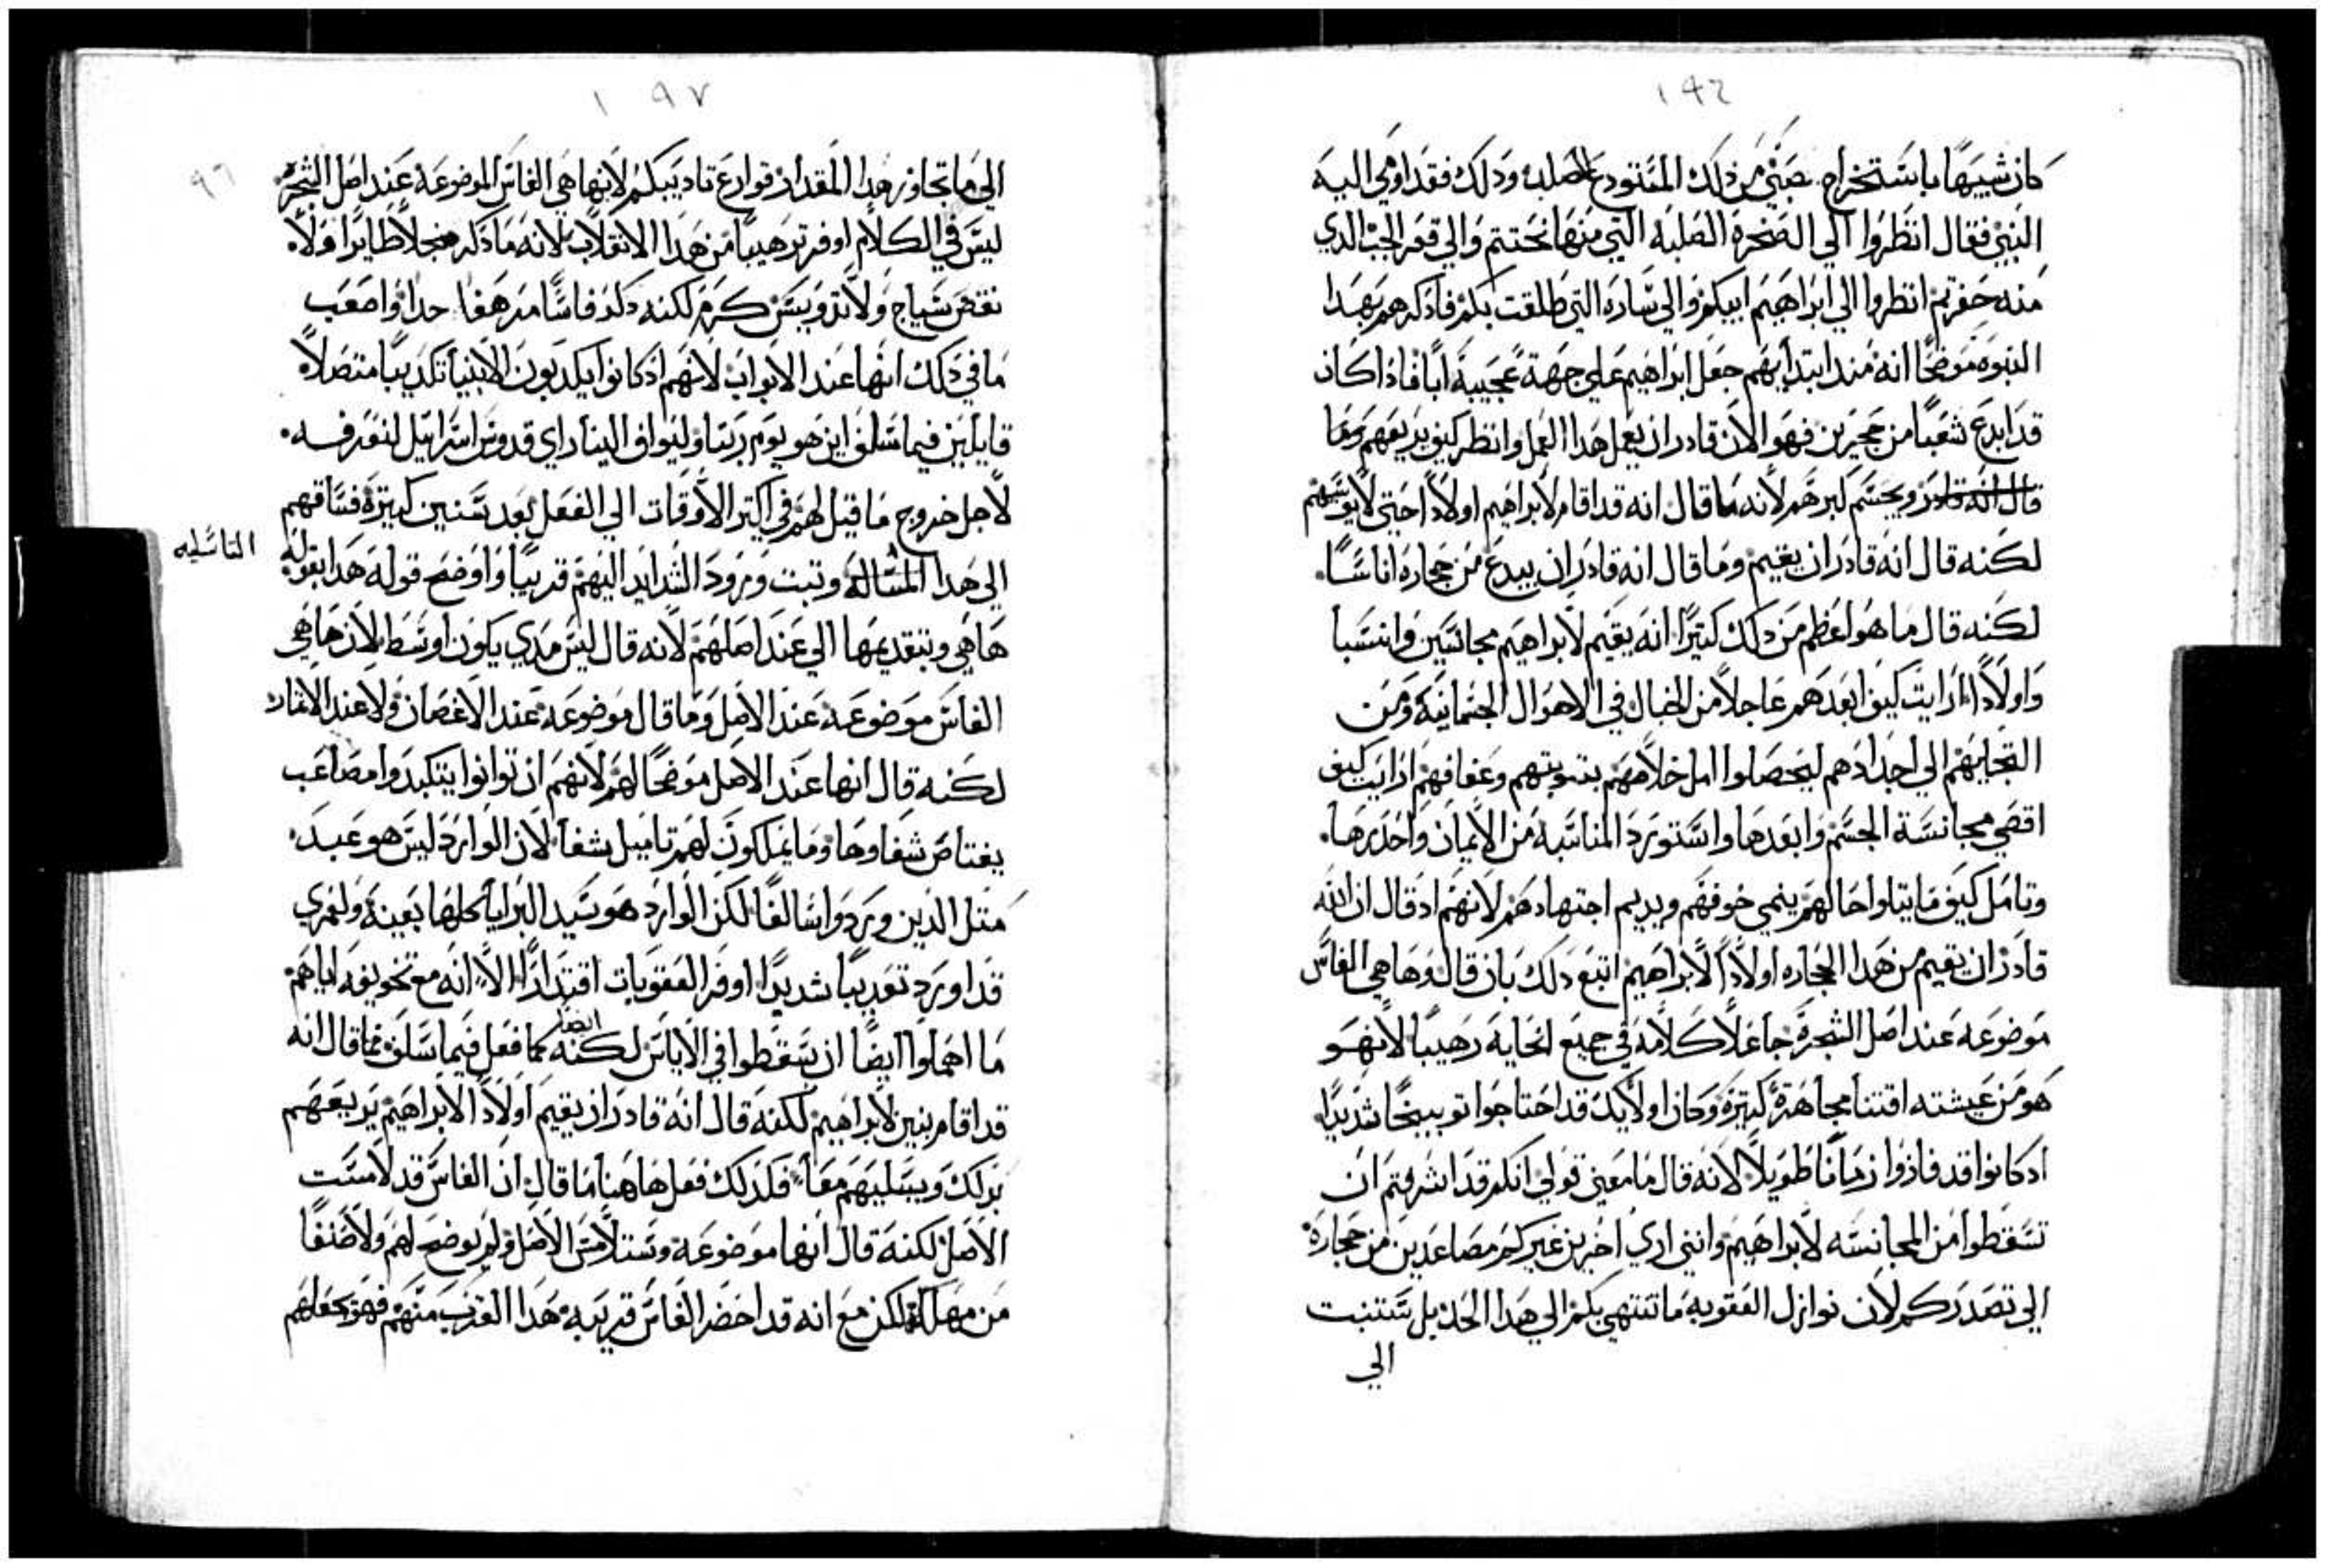 ١٩٦
كان شبيهًا باستخراج صبي من ذلك المستودع الصلب ودلك فقد اومى اليه
النبي فقال انظروا الي الصخره الصلبه التي منها نحتتم والي قعر الجب الدي
منه حفرتم انظروا الي ابراهيم ابيكم والي ساره التي طلقت بكم فادكرهم بهدا
النبوه موضحًا انه مند ابتدايهم جعل ابراهيم علي جهة عجيبة ابًا فادا كان
قد ابدع شعبًا من حجرين فهو الان قادر ان يعمل هدا العمل وانظر كيف يريعهم وما
قال انه قادر ويحسم كبرهم لانه ما قال انه قد اقام لابراهيم اولادًا حتي لا يويسهم
لكنه قال انه قادر ان يقيم وما قال انه قادر ان يبدع من حجاره اناسًا
لكنه قال ما هو اعظم من دلك كتيرًا انه يقيم لابراهيم مجانسين وانسبا
واولادًا ارايت كيف ابعدهم عاجلاً من الخيال في الاهوال الجسمانيه ومن
التجايهم الي اجدادهم ليحصلوا امل خلاصهم بتوبتهم وعفافهم ارايت كيف
اقصي مجانسة الجسم وابعدها واستورد المناسبه من الايمان واحدرها
وتامل كيف ما يتلوا حالهم ينمي خوفهم ويريم اجتهادهم لانهم اد قال ان الله
قادر ان يقيم من هدا الحجاره اولادًا لابراهيم اتبع دلك بان قال وها هي الفاس
موضوعه عند اصل الشجرة جاعلاً كلامه في جميع انحايه رهيبًا لانهو
هو من عيشته اقتنا مجاهرة كتيرة وكان اوليك قد احتاجوا توبيخًا شديدًا
ادكانوا قد فاذوا زمانًا طويلاً لانه قال ما معني قولي انكم قد اشرفتم ان
تسقطوا من المجانسه لابراهيم وانني اري اخرين غيركم مصاعدين من حجارة
الي تصدركم لان نوازل العقوبه ما تنتهي بكم الي هدا الحد بل ستنبت
الي
١٩٧
٩٦
الي ما تجاوز هدا المقدار قوارع تاديبكم لانها هي الفاس الموضوعة عند اصل الشجرة
ليس في الكلام اوفر ترهيبًا من هدا الانقلاب لانه ما دكر منجلاً طايرًا ولا
نقض سياج ولا تدويس كرم لكنه دكر فاسًا مرهفا حدا واصعب
ما في دلك انها عند الابواب لانهم ادكانوا يكدبون الانبيا تكديبًا متصلاً
قايلين فيما سلف اين هو يوم ربنا وليواف الينا راي قدوس اسراييل لنعرفه
لاجل خروج ما قيل لهم في اكتر الاوقات الي الفعل بعد سنين كتيرة فساقهم
الي هدا المساله وتبت ورود الشدايد اليهم قريبًا واوضح قوله هدا بقوله
الفاسليه
ها هي وبتقديمها الي عند اصلهم لانه قال ليس مدي يكون اوسط لان ها هي
الفاس موضوعه عند الاصل وما قال موضوعه عند الاغصان ولا عند الاتمار
لكنه قال انها عند الاصل موضحًا لهم لانهم ان توانوا يتكبدوا مصاعب
يعتاص شفاوها وما يملكون لهم تاميل بشفا لان الوارد ليس هو عبد
متل الدين وردوا سالفًا لكن الوارد هو سيد البرايا كلها بعينه ولعمري
قد اورد تعديبًا شديدًا اوفر العقوبات اقتدارًا الا انه مع تخويفه اياهم
ما اهملوا ايضًا ان يسقطوا في الاياس لكنه ايضا كما فعل فيما سلف فما قال انه
قد اقام بنين لابراهيم لكنه قال انه قادر ان يقيم اولادًا لابراهيم يريعهم
بدلك ويسليهم معًا فكدلك فعل هاهنا ما قال ان الفاس قد لامست
الاصل لكنه قال انها موضوعة وستلامس الاصل ولم يوضح لهم ولا صنفًا
من مهلة لكن مع انه قد احضر الفاس قريبه هدا القرب منهم فهو يجعلهم